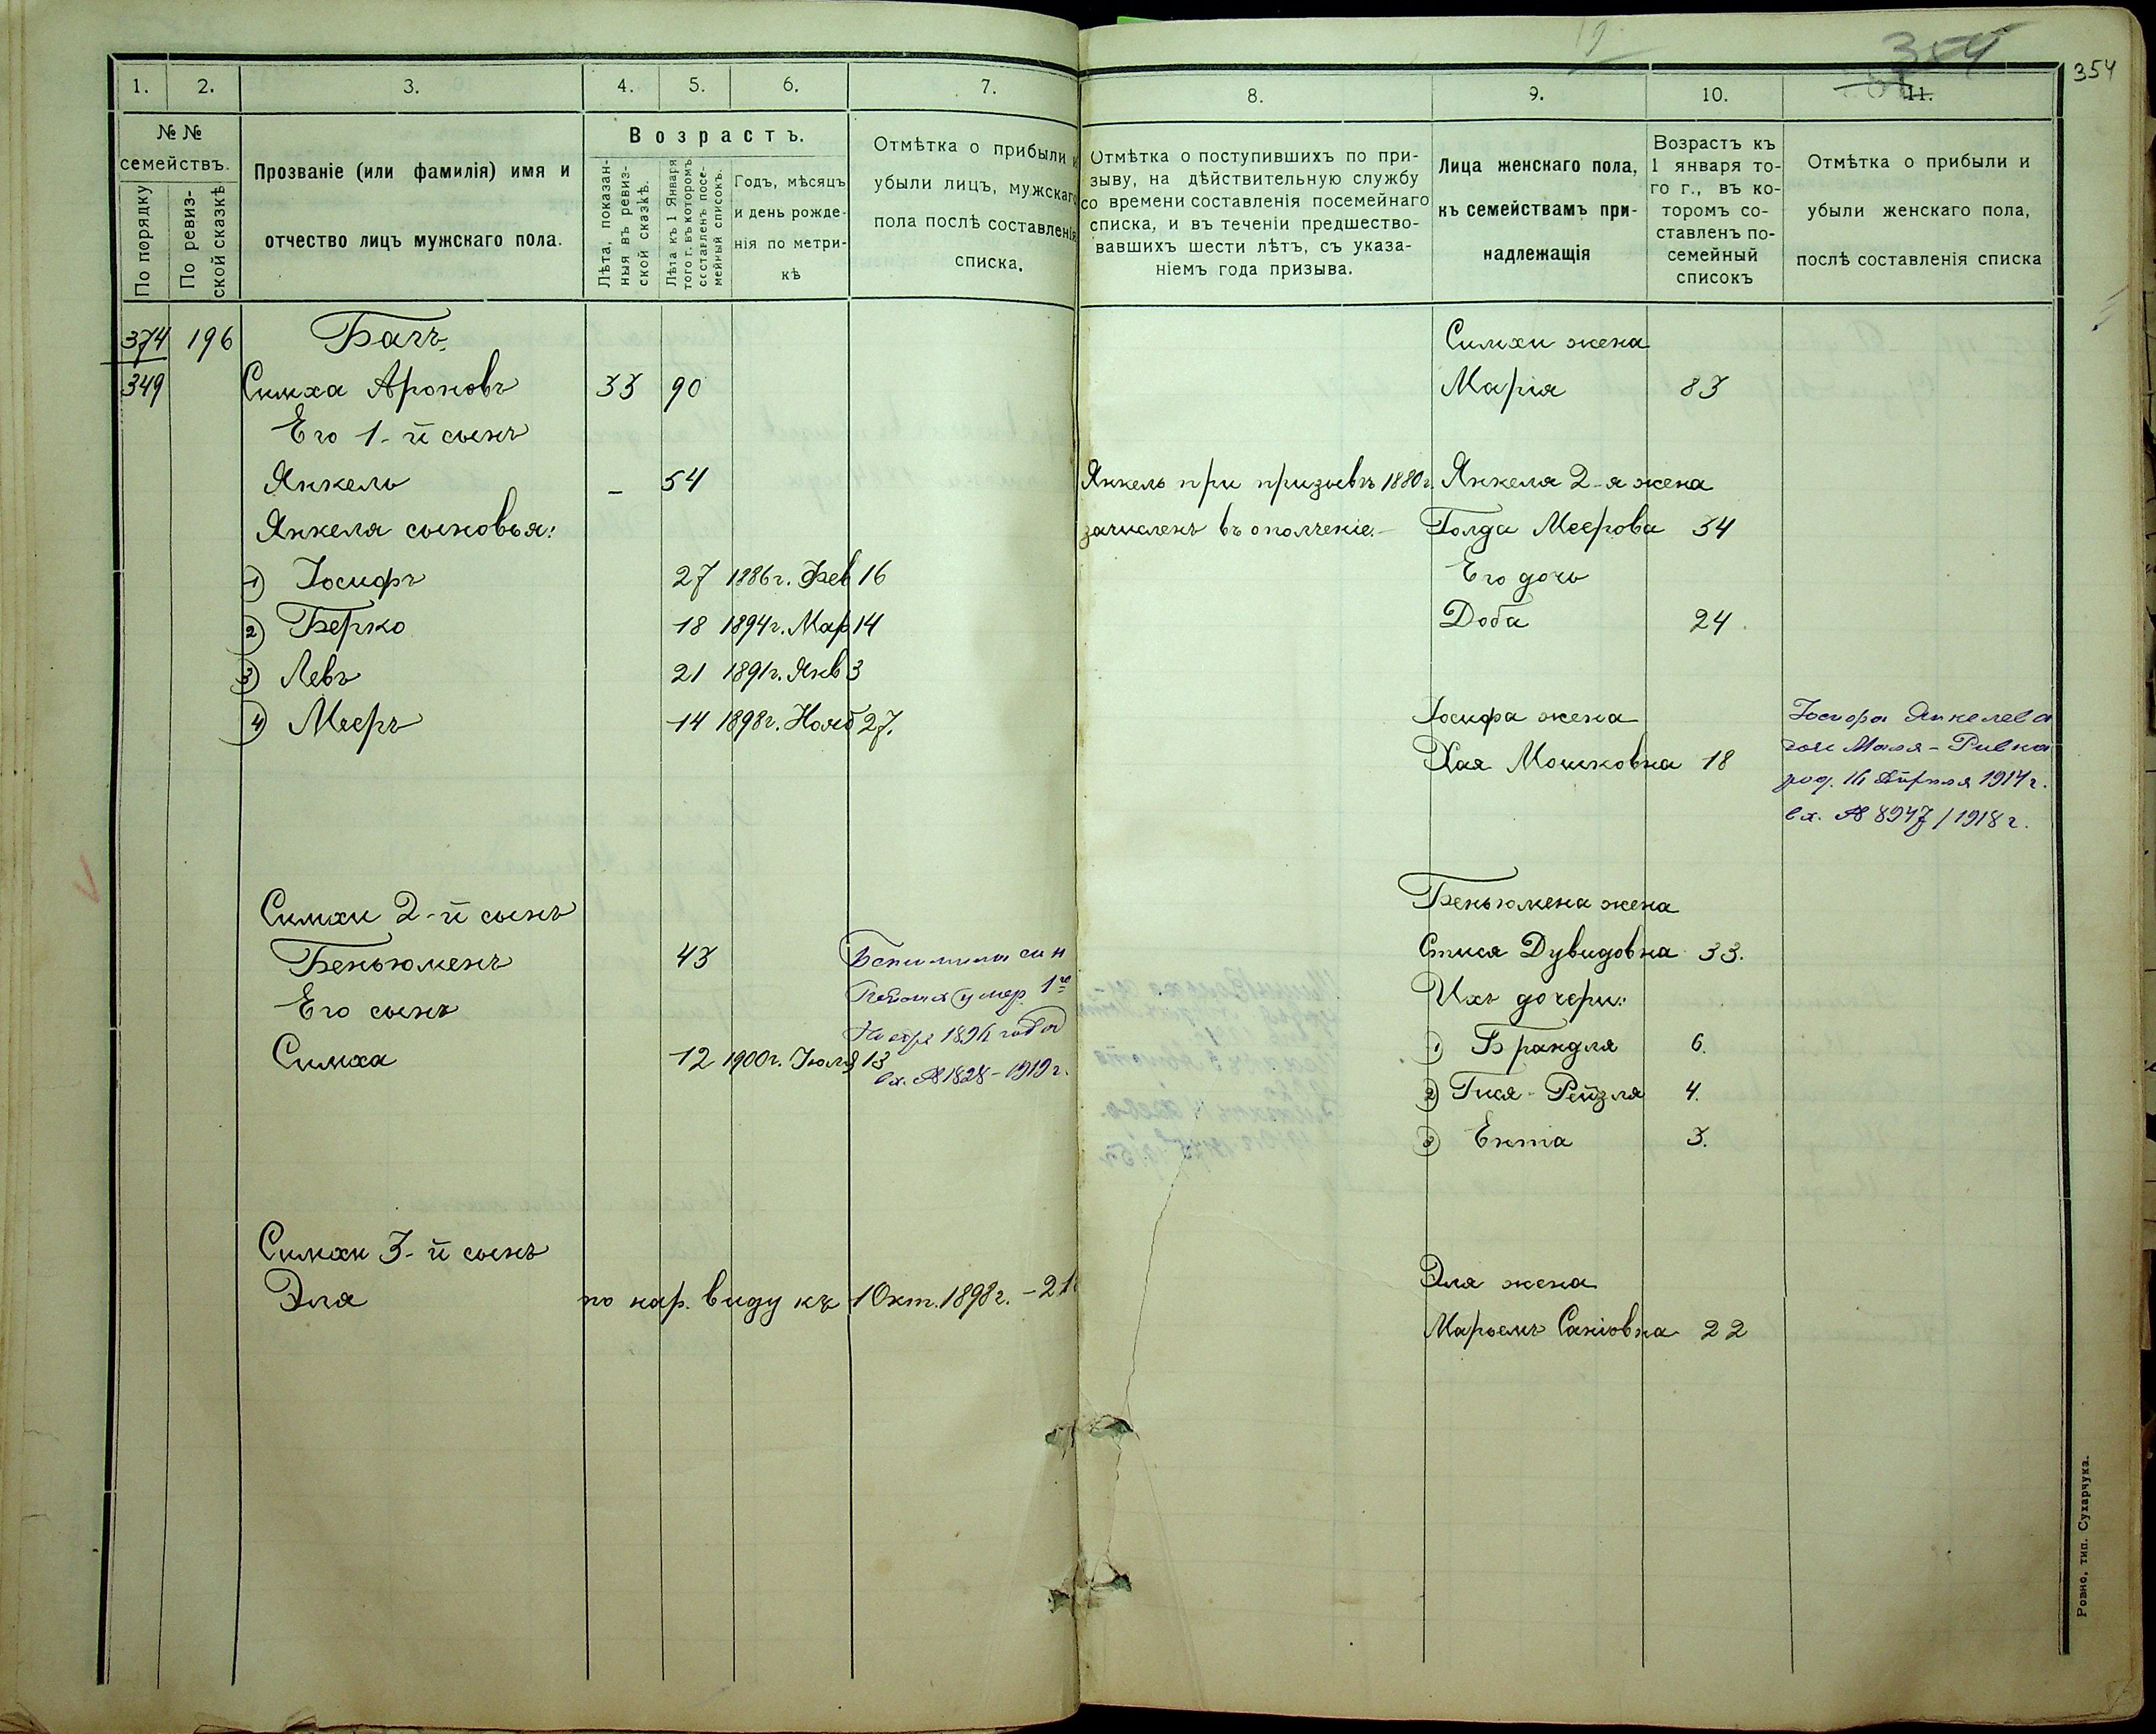 354
354
19
1. 2. 3. 4. 5. 6. 7.
№ № семействъ.
По порядку
По ревиз-
ской сказкѣ
Прозваніе (или фамилія) имя и
отчество лицъ мужскаго пола.
Возрастъ.
Лѣта, показан-
ныя въ ревиз-
ской сказкѣ.
Лѣта къ 1 Января
того г. въ которомъ
составленъ посе-
мейный списокъ.
Годъ, мѣсяцъ
и день рожде-
нія по метри-
кѣ
Отмѣтка о прибыли и
убыли лицъ, мужскаго
пола послѣ составленія
списка.
374 196 Бачъ
349 Симха Ароновъ 33 90
Его 1-й сынъ
Янкель – 54
Янкеля сыновья:
1) Іосифъ 27 1886 г. Фев 16
2) Берко 18 1894 г. Мар 14
3) Левъ 21 1891 г. Янв 3
4) Мееръ 14 1898 г. Нояб 27.
Симхи 2-й сынъ
Беньюменъ 43
Его сынъ
Симха 12 1900 г. Іюля 13
син
умер 1го
1896 года
вх. № 1828 – 1919 г.
Симхи 3-й сынъ
Эля по нар. виду къ 1 Окт. 1898 г. – 21
8. 9. 10. 11.
Отмѣтка о поступившихъ по при-
зыву, на дѣйствительную службу
со времени составленія посемейнаго
списка, и въ теченіи предшество-
вавшихъ шести лѣтъ, съ указа-
ніемъ года призыва.
Лица женскаго пола,
къ семействамъ при-
надлежащія
Возрастъ къ
1 января то-
го г., въ ко-
торомъ со-
ставленъ по-
семейный
списокъ
Отмѣтка о прибыли и
убыли женскаго пола,
послѣ составленія списка
Симхи жена
Марія 83
Янкель при призывѣ 1880 г. Янкеля 2-я жена
зачисленъ въ ополченіе. – Голда Меерова 54
Его дочь
Доба 24
Іосифа жена
Хая Мошковна 18
Іосифа Янкелева
дочь Маля-Ривка
род. 16 Апреля 1917 г.
вх. № 8947 / 1918 г.
Беньюмена жена
Стися Дувидовна 33.
Ихъ дочери:
1) Брандля 6.
2) Гися-Рейзля 4.
3) Ента 3.
Эля жена
Марьемъ Саніовна 22
Ровно, тип. Сухарчука.